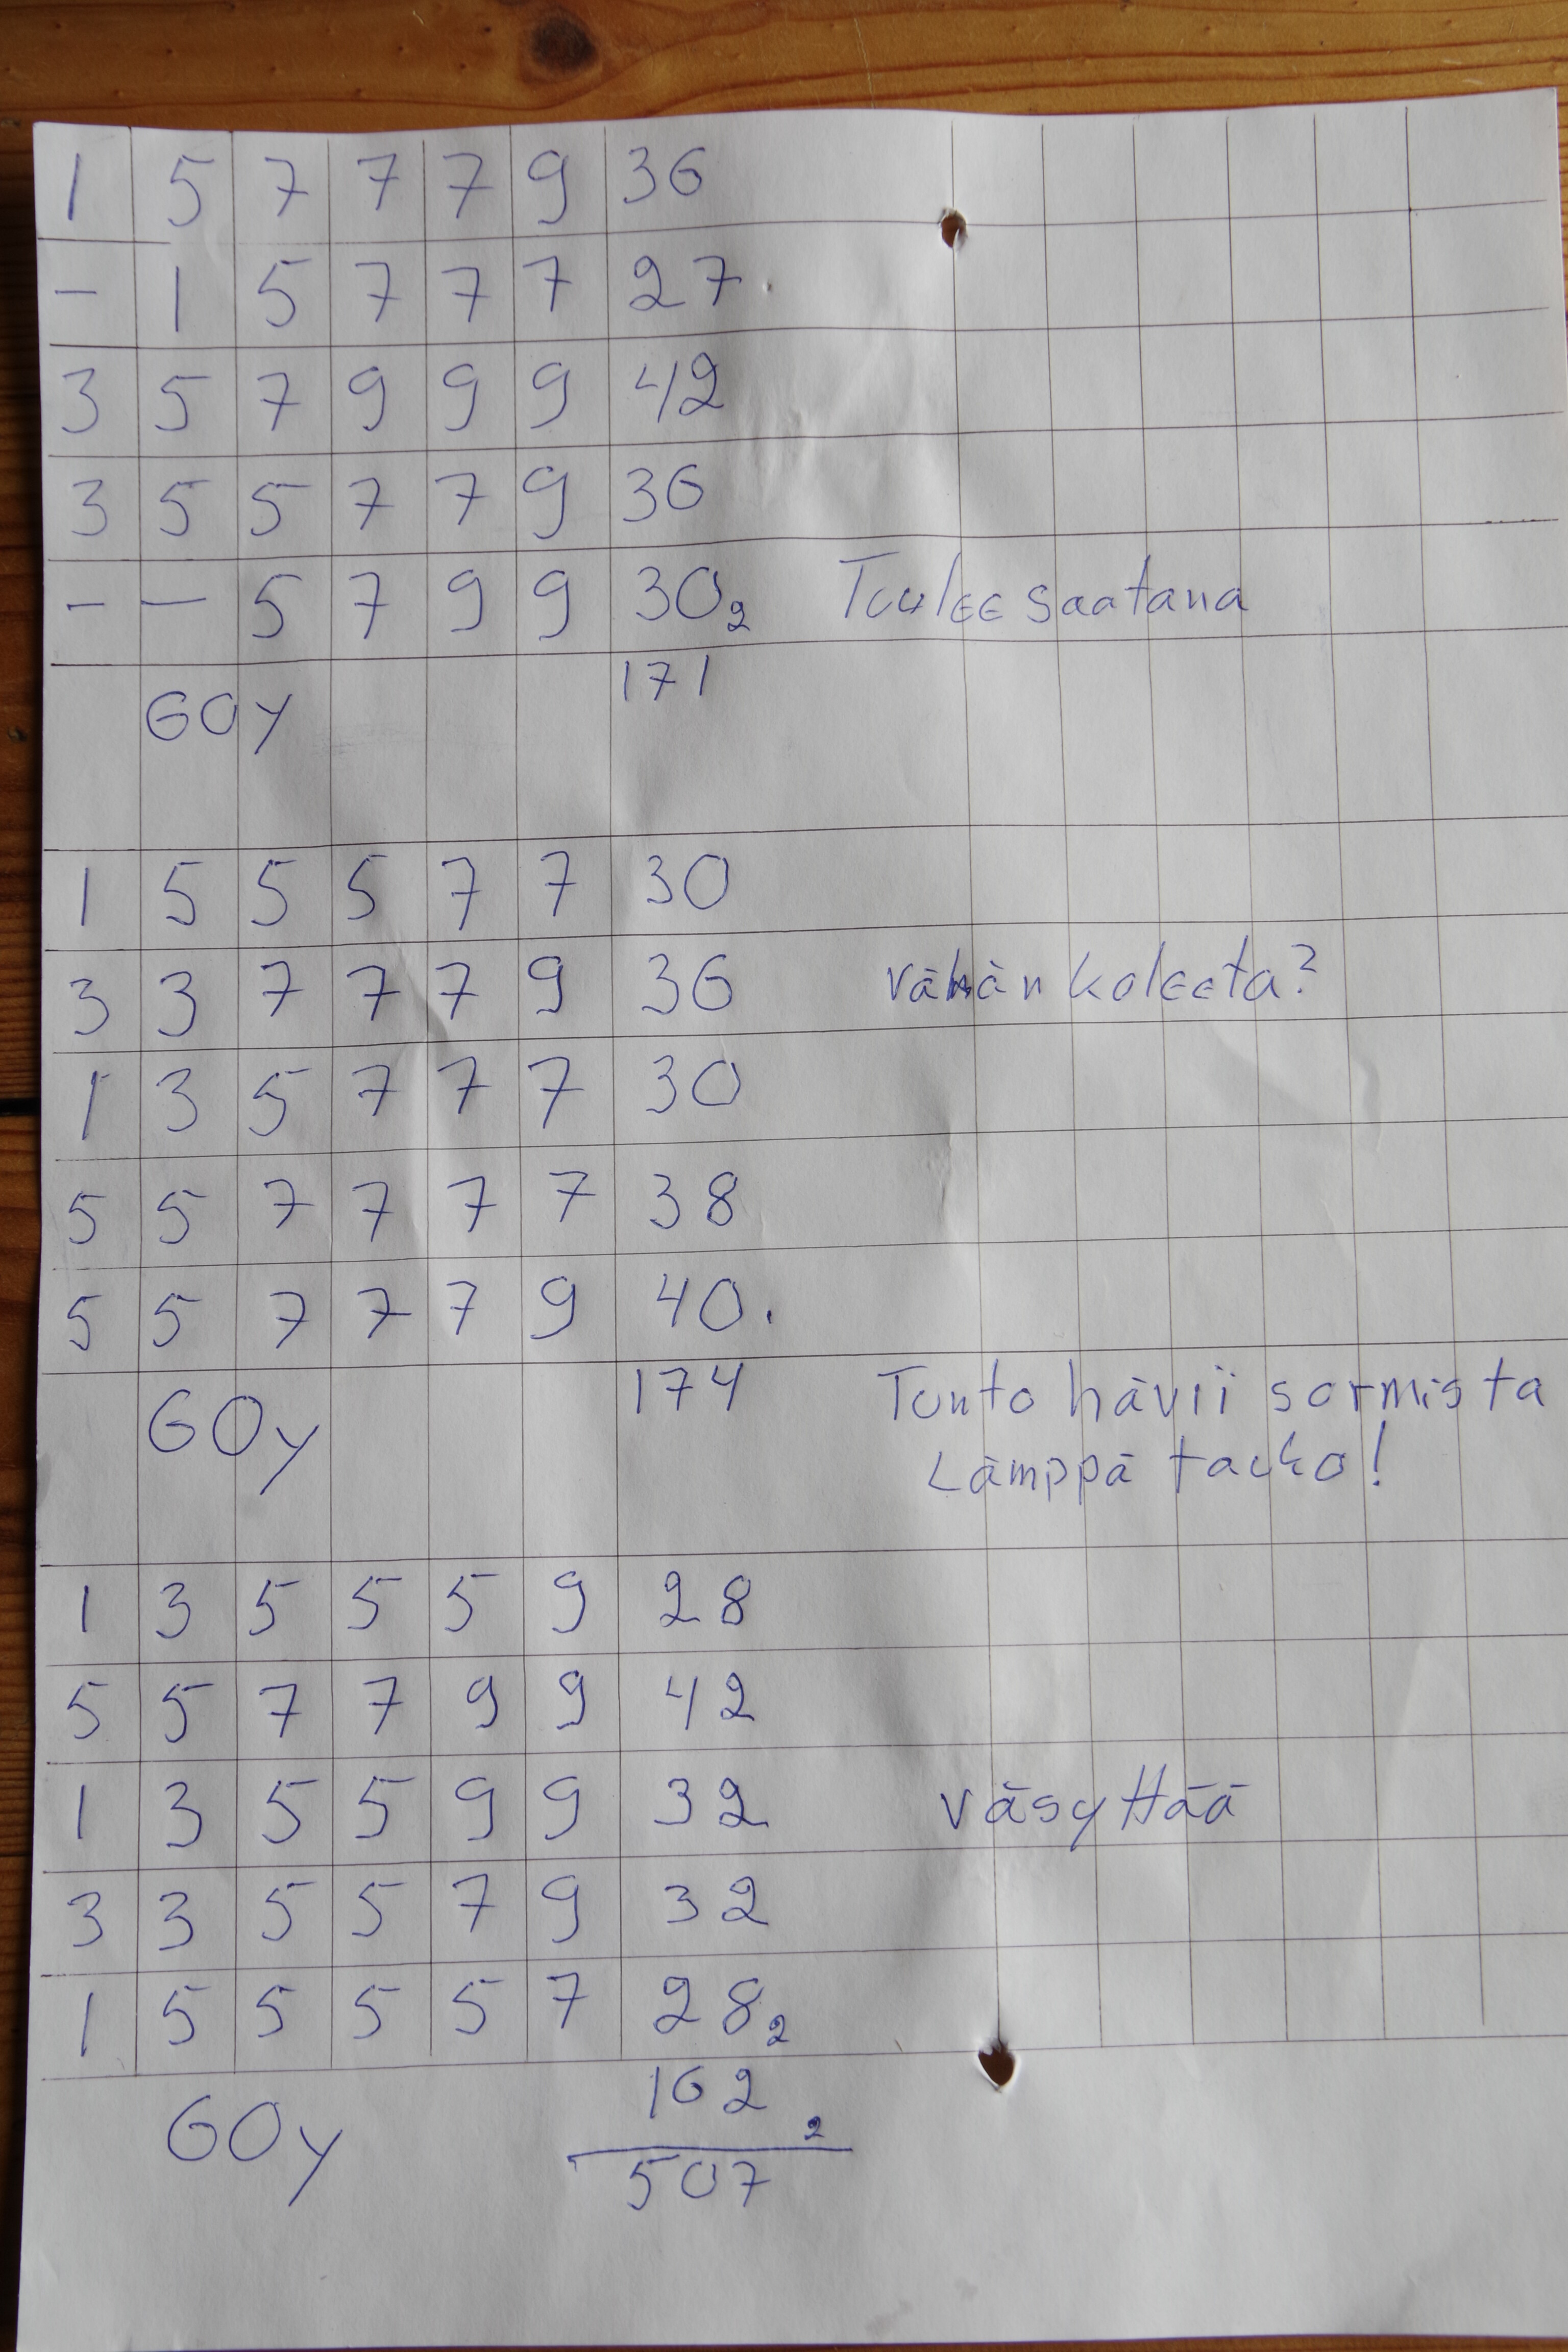 1 5 7 7 7 9 36
- 1 5 7 7 7 27.
3 5 7 9 9 9 42
3 5 5 7 7 9 36
- - 5 7 9 9 30 2 Tuulee saatana
171
60y
1 5 5 5 7 7 30
3 3 7 7 7 9 36 vähän koleeta?
1 3 5 7 7 7 30
5 5 7 7 7 7 38
5 5 7 7 7 9 40.
174 Tunto hävii sormista
60y Lämppä tauko!
1 3 5 5 5 9 28
5 5 7 7 9 9 42
1 3 5 5 9 9 32 väsyttää
3 3 5 5 7 9 32
1 5 5 5 5 7 28 2
60y 162 2
507